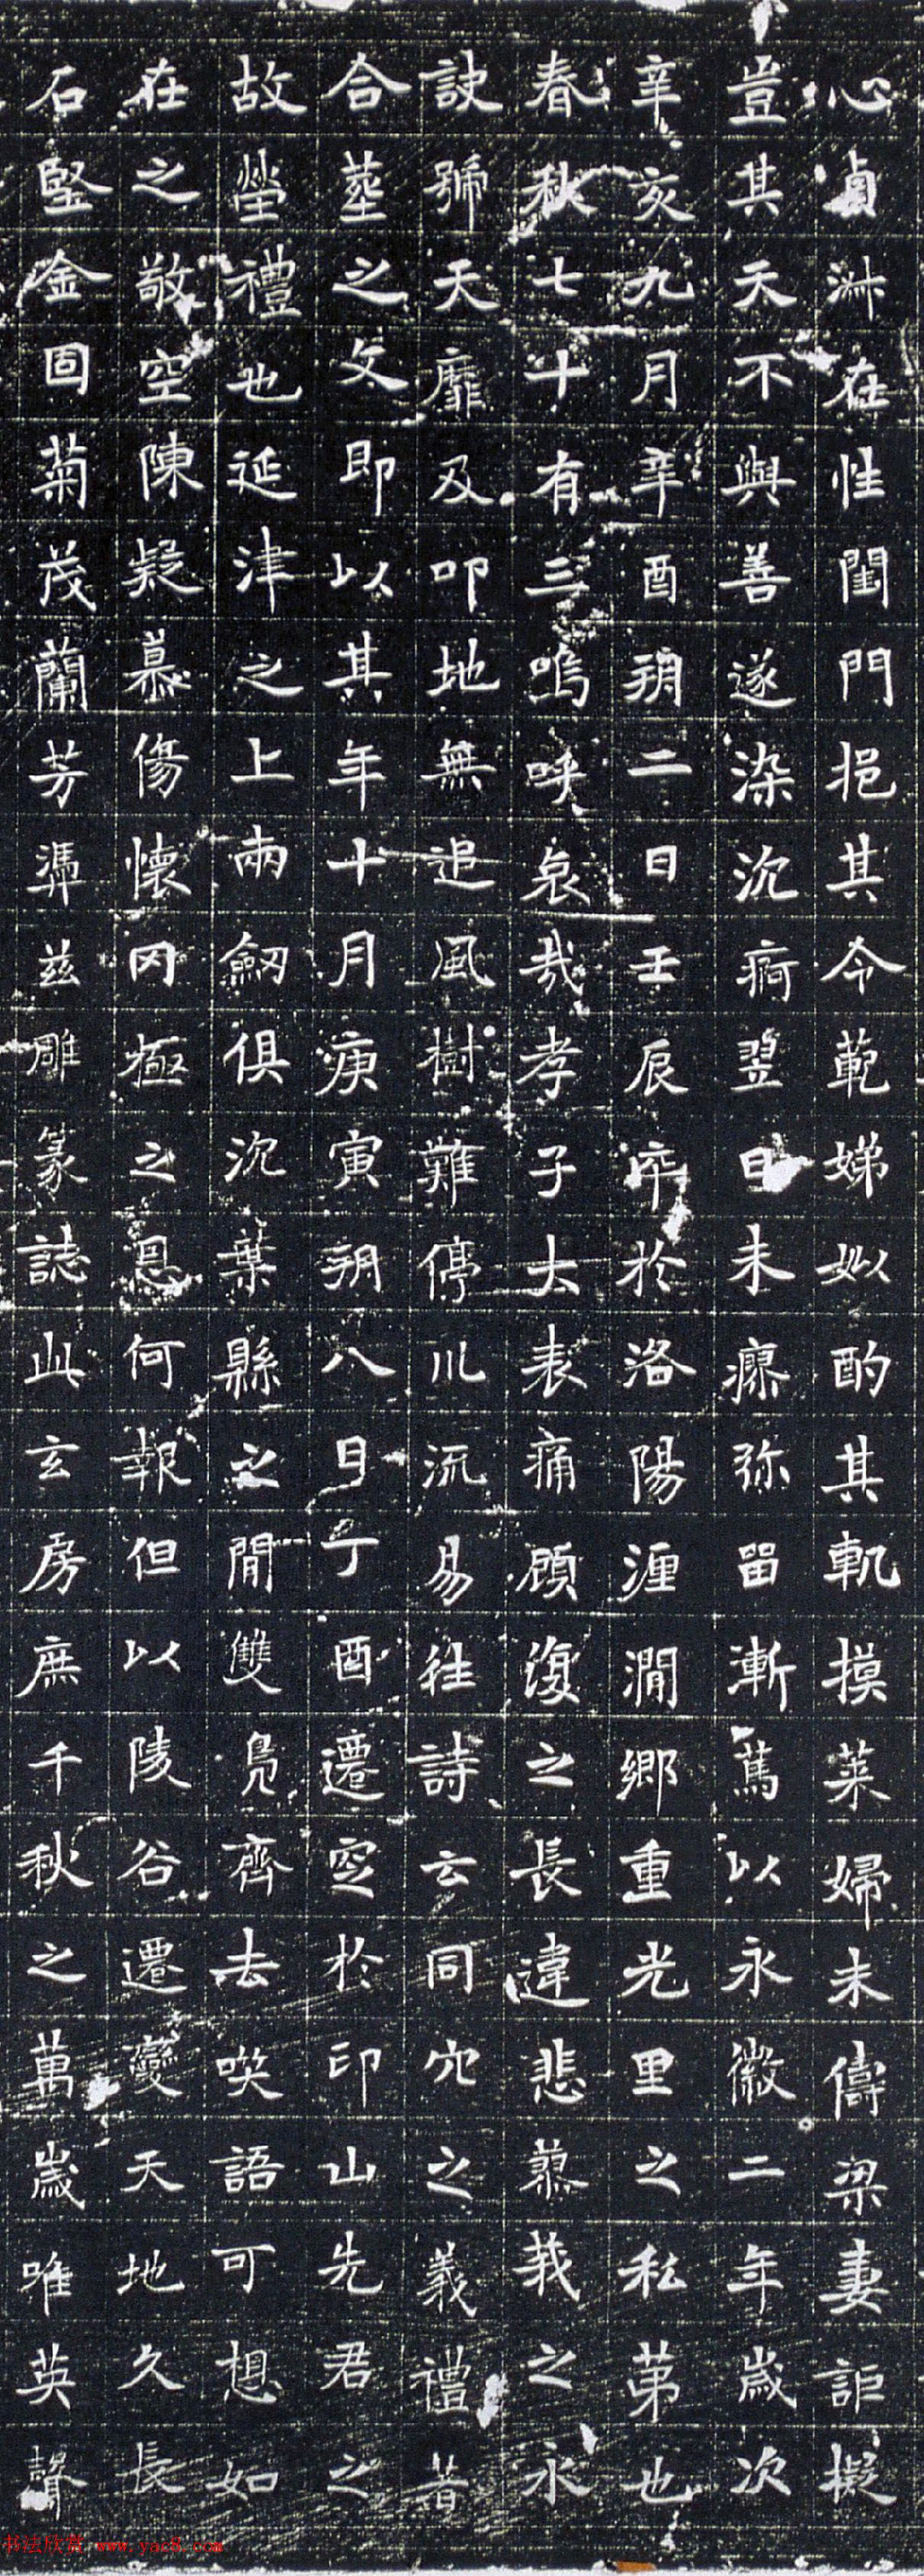 心貞淋在性閨門挹其令範娣姒酌其軌摸萊婦未儔梁妻詎擬
豈其天不與善遂染沉痾翌日未瘳弥留漸篤以永徽二年歲次
辛亥九月辛酉朔二日壬辰卒於洛陽湹澗鄉重光里之私苐也
春秋七十有三嗚呼哀哉孝子大表痛顧復之長違悲蓼莪之永
訣號天靡及叩地無追風樹難停川流易往詩云同穴之義禮著
合葬之文即以其年十月庚寅朔八日丁酉遷窆於印山先君之
故塋禮也延津之上兩劒俱沉葉縣之間雙鳧齊去咲語可想如
在之敬空陳疑慕傷懷罔極之恩何報但以陵谷遷變天地久長
石堅金固菊茂蘭芳憑茲雕篆誌此玄房庶千秋之萬歲唯英聲
书法欣赏 www.yac8.com